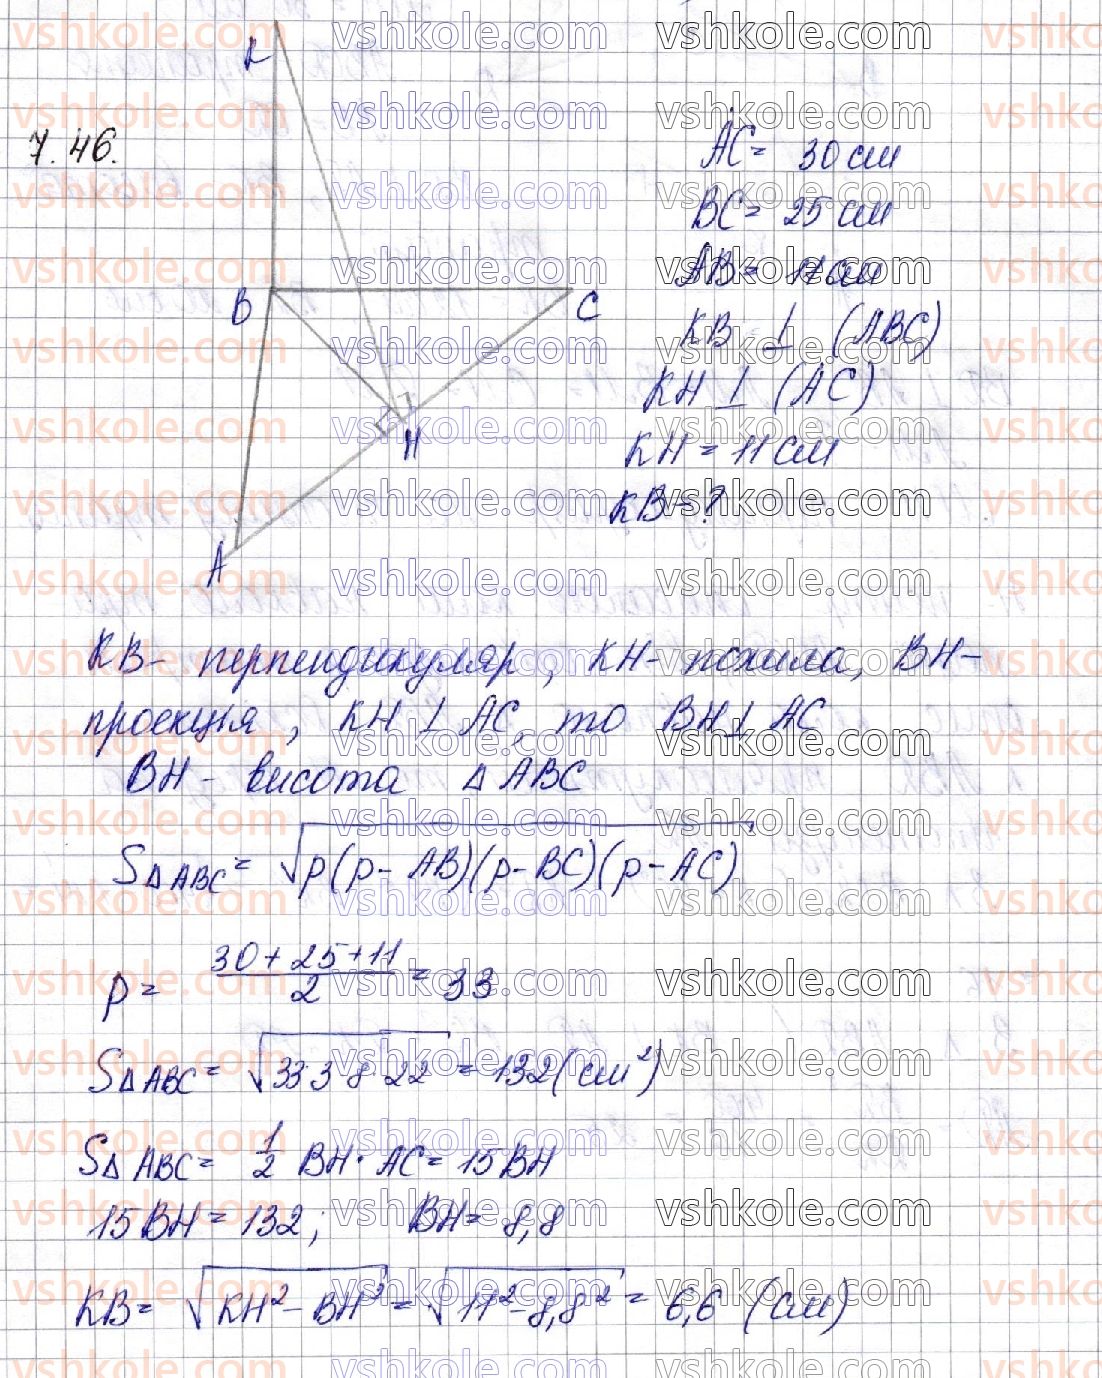 K
7.46.
AC = 30 см
BC = 25 см
AB = 11 см
KB ⊥ (ABC)
KH ⊥ (AC)
KH = 11 см
KB - ?
B
C
H
A
KB - перпендикуляр, KH - похила, BH -
проекція, KH ⊥ AC, то BH ⊥ AC
BH - висота △ ABC
S△ABC = √p(p - AB)(p - BC)(p - AC)
p = (30 + 25 + 11)/2 = 33
S△ABC = √33·3·8·22 = 132 (см²)
S△ABC = 1/2 BH · AC = 15 BH
15 BH = 132; BH = 8,8
KB = √KH² - BH² = √11² - 8,8² = 6,6 (см)
vshkole.com